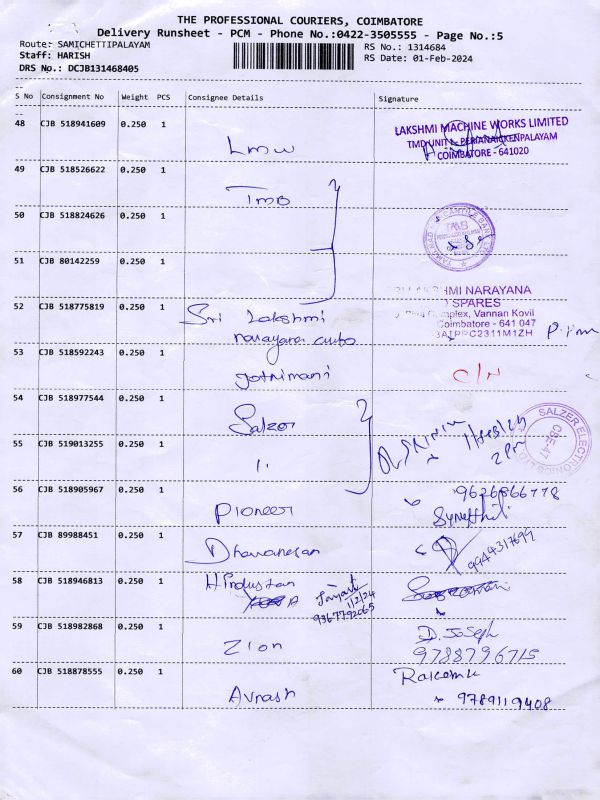 THE PROFESSIONAL COURIERS, COIMBATORE
Delivery Runsheet - PCM - Phone No.:0422-3505555 - Page No.:5
Route: SAMICHETTIPALAYAM RS No.: 1314684
Staff: HARISH RS Date: 01-Feb-2024
DRS No.: DCJB131468405
S No Consignment No Weight PCS Consignee Details Signature
48 CJB 518941609 0.250 1
LAKSHMI MACHINE WORKS LIMITED
TMD UNIT PERIANAICKENPALAYAM
COIMBATORE - 641020
Lmw
49 CJB 518526622 0.250 1
TMB
50 CJB 518824626 0.250 1
51 CJB 80142259 0.250 1
52 CJB 518775819 0.250 1
Sri Lakshmi
narayana
LAKSHMI NARAYANA
SPARES
Complex, Vannan Kovil
Coimbatore - 641 047
53 CJB 518592243 0.250 1
Jothimani C/N
54 CJB 518977544 0.250 1
Salzer
SALZER ELECTRONICS LTD
CBE-47
55 CJB 519013255 0.250 1
"
56 CJB 518905967 0.250 1
Pioneer
9626866778
57 CJB 89988451 0.250 1
9944317699
58 CJB 518946813 0.250 1
Hindustan
1/2/24
9367792065
59 CJB 518982868 0.250 1
Zion
D. Joseph
9788796715
60 CJB 518878555 0.250 1
Avnash
9789119408